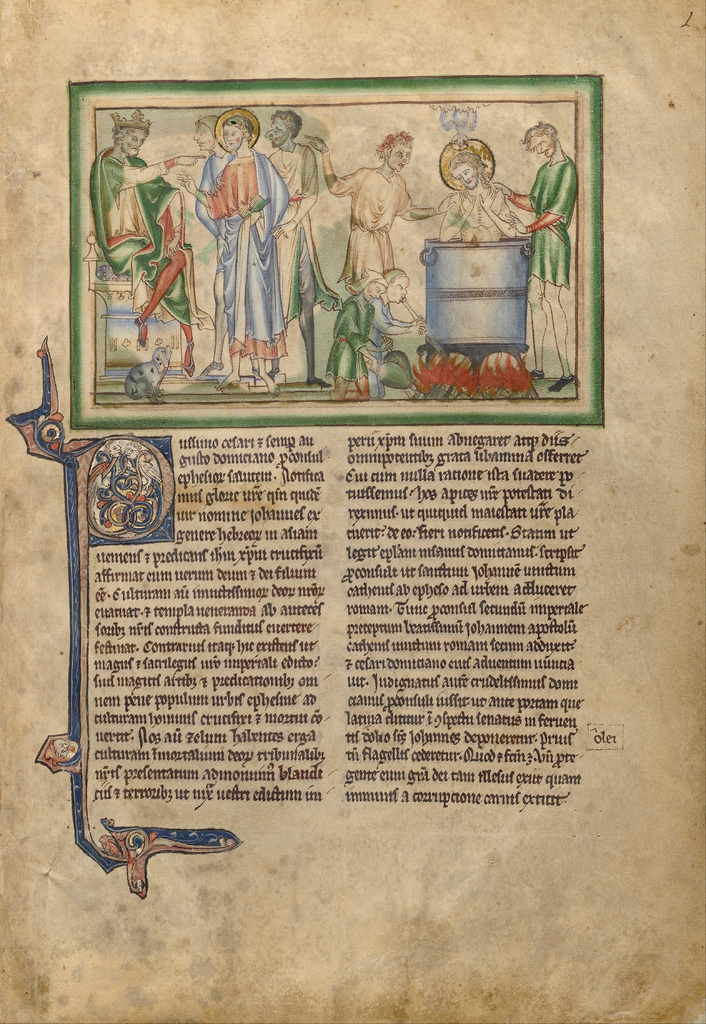 L
Piissimo cesari ⁊ semp au
gusto domiciano ꝓconsul
ephesioꝝ salutem. Notifica
mus glorie vr̄e qm̄ quidē
uir nomine Johannes ex
genere hebreoꝝ in asiam
ueniens ⁊ predicans ihm̄ xp̄m crucifixū
affirmat eum uerum deum ⁊ dei filium
eē. Culturam aū inuictissimoꝝ deoꝝ nr̄oꝝ
euacuat. ⁊ templa ueneranda ab anteces
soribꝫ nr̄is constructa funditus euertere
festinat. Contrarius itaqꝫ hic existens ut
magus ⁊ sacrilegus vr̄o imperiali edicto:
suis magicis artibꝫ ⁊ predicationibꝫ om
nem pene populum urbis ephesine ad
culturam hominis crucifixi ⁊ mortui cō
uertit. Nos aū zelum habentes erga
culturam īmortalium deoꝝ tribunalibꝫ
nr̄is presentatum admonuimꝰ blandi
ciis ⁊ terroribꝫ ut iuxᵃ uestri edictum im
perii xp̄m suum abnegaret atqꝫ diis
omnipotentibꝫ grata libamina offerret
Cui cum nulla ratione ista suadere po
tuissemus. hos apices vr̄e potestati di
reximus. ut quicquid maiestati vr̄e pla
cuerit. de eo. fieri notificetis. Statim ut
legit epl̄am insanus domicianus. scripsit
ꝓconsuli ut sanctum iohannē uinctum
cathenis ab epheso ad urbem adduceret
romam. Tunc ꝓconsul secundū imperiale
preceptum beatissimū iohannem apostolū
cathenis uinctum romam secum adduxit
⁊ cesari domitiano eius aduentum nuncia
uit. Indignatus autē crudelissimus domi
cianus ꝓconsuli iussit ut ante portam que
latina dicitur ī ꝯspectu senatus in feruen
tis dolio sc̄s iohannes deponeretur. Prius
tn̄ flagellis cederetur. Quod ⁊ fc̄m ē. Dn̄ ꝓte
gente eum grā dei tam illesus exiit quam
inmunis a corrupcione carnis extitit.
olei